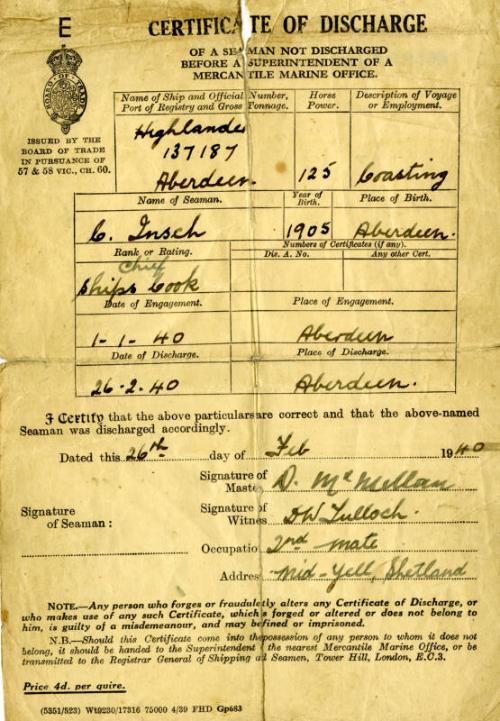 E
CERTIFICATE OF DISCHARGE
OF A SEAMAN NOT DISCHARGED
BEFORE A SUPERINTENDENT OF A
MERCANTILE MARINE OFFICE.
BOARD OF TRADE
ISSUED BY THE
BOARD OF TRADE
IN PURSUANCE OF
57 & 58 VIC., CH. 60.
Name of Ship and Official Number, Port of Registry and Gross Tonnage.
Horse Power.
Description of Voyage or Employment.
Highlander
137187
Aberdeen.
125
Coasting
Name of Seaman.
Year of Birth.
Place of Birth.
C. Insch
1905
Aberdeen.
Rank or Rating.
Numbers of Certificates (if any).
Dis. A. No.
Any other Cert.
Chief
Ships Cook
Date of Engagement.
Place of Engagement.
1-1-40
Aberdeen
Date of Discharge.
Place of Discharge.
26-2.40
Aberdeen.
I Certify that the above particulars are correct and that the above-named
Seaman was discharged accordingly.
Dated this 26th day of Feb 1940
Signature of Master D. McMillan
Signature of Seaman:
Signature of Witness DW Tulloch.
Occupatio 2nd mate
Addres Mid-Yell, Shetland
NOTE.—Any person who forges or fraudulently alters any Certificate of Discharge, or
who makes use of any such Certificate, which is forged or altered or does not belong to
him, is guilty of a misdemeanour, and may be fined or imprisoned.
N.B.—Should this Certificate come into the possession of any person to whom it does not
belong, it should be handed to the Superintendent of the nearest Mercantile Marine Office, or be
transmitted to the Registrar General of Shipping and Seamen, Tower Hill, London, E.C.3.
Price 4d. per quire.
(5351/523) Wt9230/17316 75000 4/39 FHD Gp683